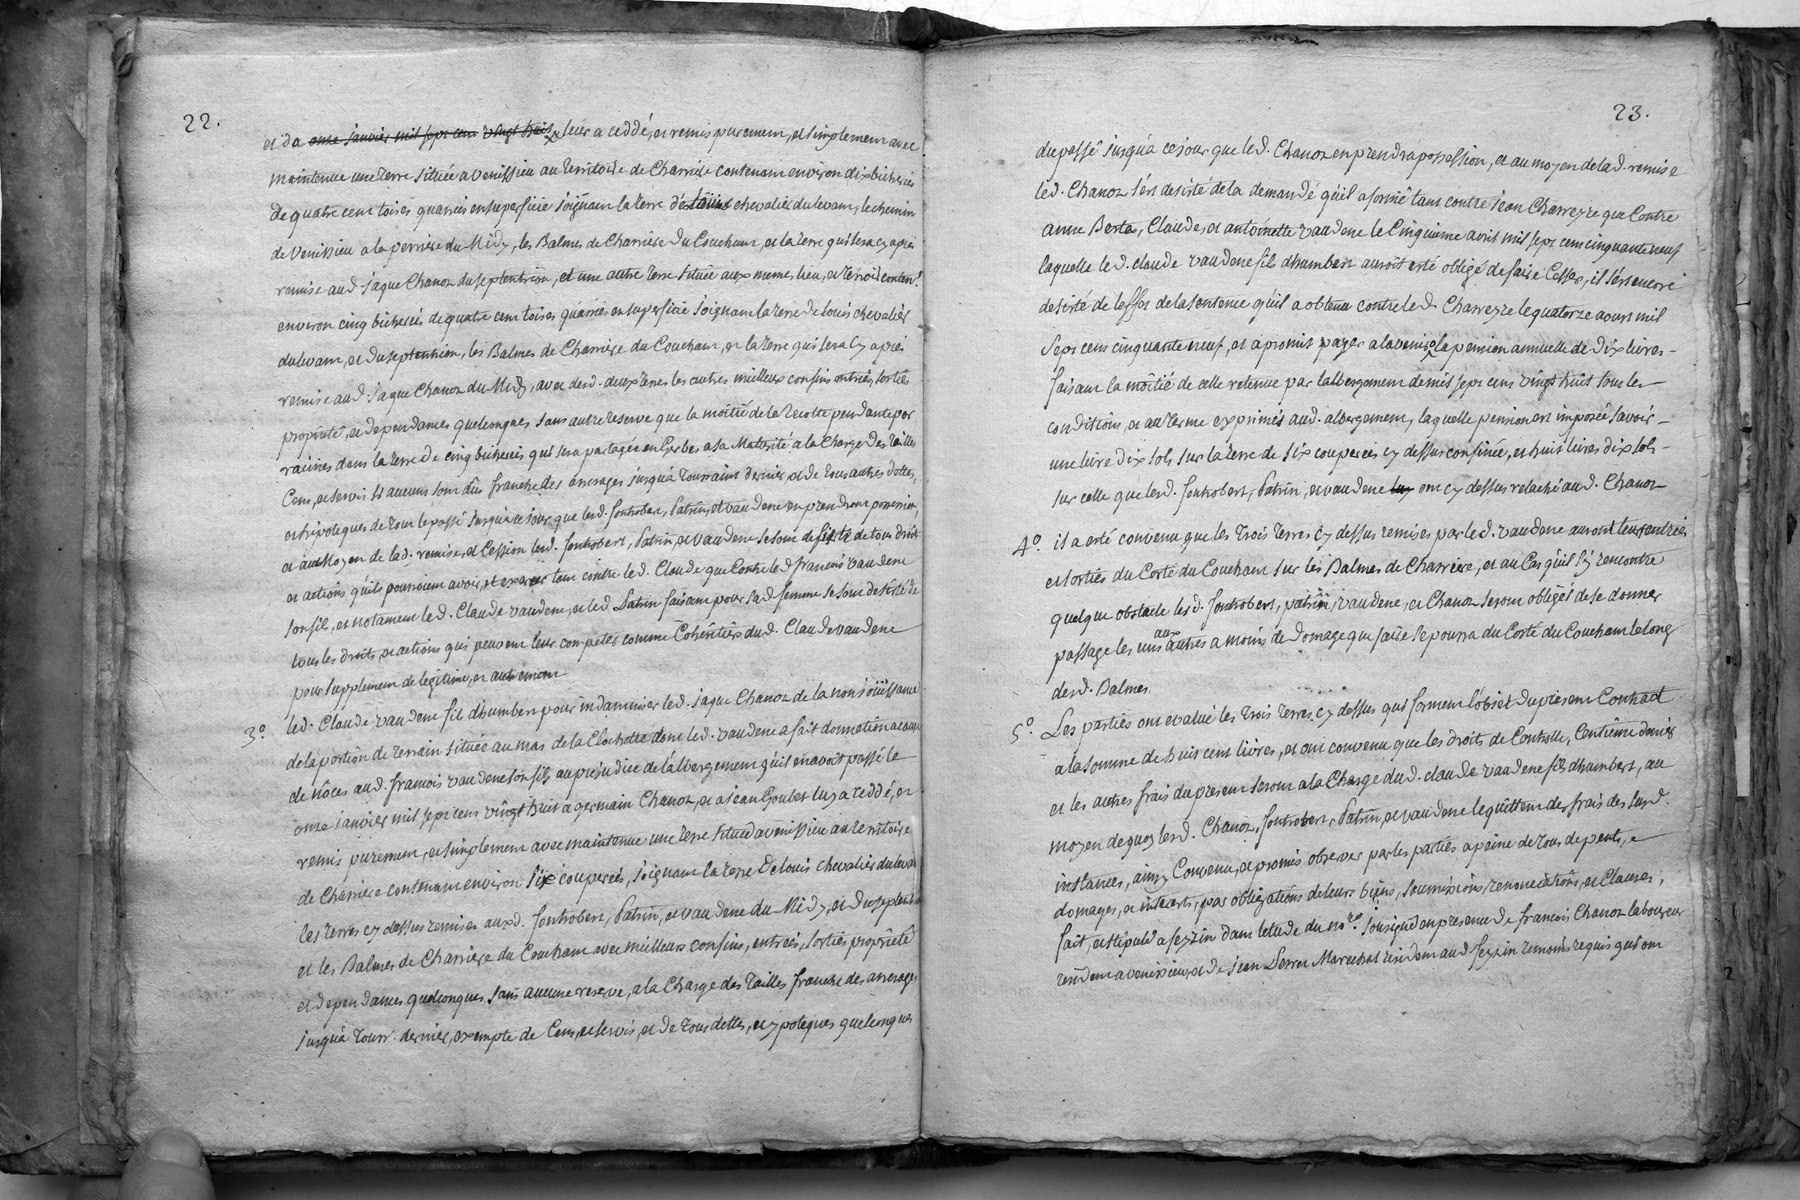 22.
et da onze janvier mil sept cens vingt huit leur a ceddé, et remis purement, et simplement avec
maintenue une terre située a venissieu au territoire de Charriere contenant environ dix bicherées
de quatre cent toises quarrées en superficie joignant la terre de louis chevalier du levant, le chemin
de Venissieu a la perriere du Midy, les Balmes de Charriere du Couchant, et la terre qui sera cy apres
remise aud. jaque Chanoz du septentrion, et une autre terre située aux memes lieu, et terroir content.
environ cinq bicherées de quatre cent toises quarrées en superficie joignant la terre de louis chevalier
du levant, et du septentrion, les Balmes de Charriere du Couchant, et la terre qui sera cy apres
remise aud. jaque Chanoz du Midy, avec desd. deux terres les autres meilleux confins entrées, sorties
proprieté, et dependances quelconques sans autre reserve que la moitié de la recolte pendante par
racines dans la terre de cinq bicherées qui sera partagée en Gerbes a sa Maturité a la Charge des tailles
Cens, et servis si aucuns sont dûs franche des arrerages jusqu'a toussaint dernier, et de tous autres dettes,
et hipoteques de tout le passé jusqu'a ce jour que lesd. fontrobert, Patrin, et vaudene en prendront possession,
et au Moyen de lad. remise, et Cession lesd. fontrobert, Patrin, et vaudene se sont desisté de tous droits
et actions qu'ils pourroient avoir, et exercer tant contre led. Claude que Contre led. francois vaudene
son fils, et notament led. Claude vaudene, et led. Patrin faisant pour sad. femme se sont desisté de
tous les droits, et actions qui peuvent leur competer comme Cohéritiers dud. Claude vaudene
pour supplement de legitime, et autrement
3.° led. Claude vaudene fils d'humbert pour indamniser led. jaque Chanoz de la non jouissance
de la portion de terrain située au mas de la Clochette dont led. vaudene a fait donnation a cause
de nôces aud. francois vaudene son fils au préjudice de l'albergement qu'il en avoit passé le
onze janvier mil sept cens vingt huit a germain Chanoz, et a jean Goubet luy a ceddé, et
remis purement, et simplement avec maintenue une terre située a venissieu au territoire
de Charriere contenant environ six couperées, joignant la terre de louis chevalier du levant
les terres cy dessus remises auxd. fontrobert, Patrin, et vaudene du Midy, et du septentrion
et les Balmes de Charriere du Couchant avec meilleurs confins, entrées, sorties proprieté
et dependances quelconques sans aucune reserve, a la Charge des tailles franche des arrerages
jusqu'a touss. dernier, exempte de Cens, et servis, et de tous dettes, et ypoteques quelconques
23.
du passé jusqu'a ce jour que led. Chanoz en prendra possession, et au moyen de lad. remise
led. Chanoz s'est desisté de la demande qu'il a formé tant contre jean Charreyre que Contre
anne Berta, Claude, et antoinette vaudene le Cinquieme avril mil sept cens cinquante neuf
laquelle led. claude vaudene fils d'humbert auroit eté obligé de faire Cesser, il s'est encore
desisté de l'effet de la sentence qu'il a obtenu contre led. Charreyre le quatorze aoust mil
sept cens cinquante neuf, et a promit payer a l'avenir la pension annuelle de dix livres
faisant la moitié de celle retenue par l'albergement de mil sept cens vingt huit sous les
conditions, et au terme exprimés aud. albergement, laquelle pension est imposée savoir
une livre dix sols sur la terre de six couperées cy dessus confinée, et huit livres dix sols
sur celle que lesd. fontrobert, Patrin, et vaudene luy ont cy dessus relaché aud. Chanoz
4.° il a eté convenu que les trois terres cy dessus remises par led. vaudene auront leurs entrées
et sorties du Corté du Couchant sur les Balmes de Charriere, et au Cas qu'il s'y rencontre
quelque obstacle lesd. fontrobert, patrin, vaudene, et Chanoz seront obligés de se donner
passage les uns aux autres a moins de domage que faire se pourra du Corté du Couchant le long
desd. Balmes
5.° Les parties ont evalué les trois terres cy dessus qui forment l'objet du present Contract
a la somme de huit cent livres, et ont convenu que les droits de Controlle, Centieme denier
et les autres frais du present seront a la Charge dud. claude vaudene fils d'humbert, au
moyen de quoy lesd. Chanoz, fontrobert, Patrin, et vaudene le quittent des frais des susd.
instances, ainsy Convenu, et promis observer par les parties a peine de tous depents,
domages, et interests, par obligations de leurs biens, soumissions, renonciations, et Clauses,
fait, et stipulé a feyzin dans l'etude du no.re soussigné en presence de francois Chanoz laboureur
resident a venissieux, et de jean Perret Marechal resident aud. feyzin temoins requis qui ont